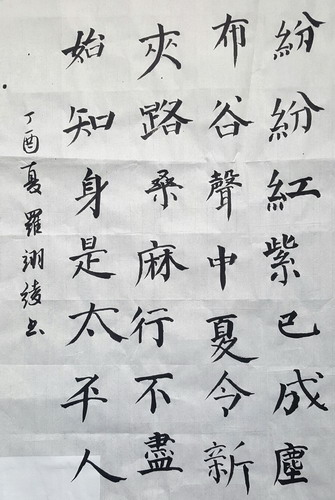 紛紛紅紫已成塵
布谷聲中夏令新
夾路桑麻行不盡
始知身是太平人
丁酉夏羅翊綾书